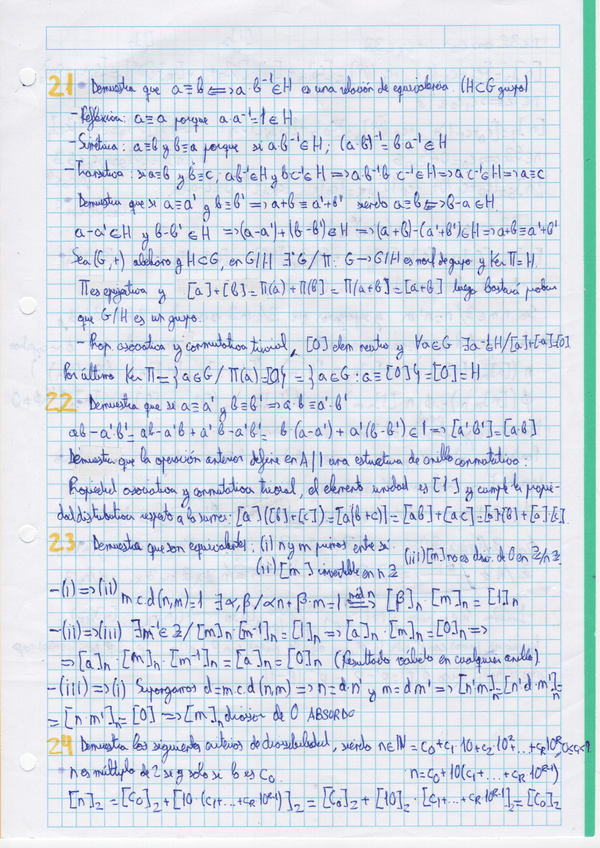 21 - Demuestra que a≡b ⟺ a·b⁻¹∈H es una relación de equivalencia (H⊂G grupo)
- Refléxiva: a≡a porque a·a⁻¹=1∈H
- Simétrica: a≡b y b≡a porque si a·b⁻¹∈H; (a·b)⁻¹=b a⁻¹∈H
- Transitiva: si a≡b y b≡c, ab⁻¹∈H y bc⁻¹∈H ⟹ a·b⁻¹b c⁻¹∈H ⟹ a c⁻¹∈H ⟹ a≡c
Demuestra que si a≡a' y b≡b' ⟹ a+b≡a'+b' siendo a≡b ⟺ b-a∈H
a-a'∈H y b-b'∈H ⟹ (a-a')+(b-b')∈H ⟹ (a+b)-(a'+b')∈H ⟹ a+b≡a'+b'
Sea (G,+) abeliano y H⊂G, en G/H ∃ / π: G→G/H es morf de grupo y Ker π=H
π es epiyectiva y [a]+[b]=π(a)+π(b)=π(a+b)=[a+b] luego bastará probar
que G/H es un grupo.
- Prop. asociativa y conmutativa trivial, [0] elem neutro y ∀a∈G ∃ /[a]+[-a]=[0]
Por último Ker π={a∈G / π(a)=[0]}={a∈G: a≡[0]}=[0]=H
22 - Demuestra que si a≡a' y b≡b' ⟹ a·b≡a'·b'
ab-a'b'=ab-a'b+a'b-a'b'= b(a-a')+a'(b-b')∈I ⟹ [a'b']=[a·b]
Demuestra que la operación anterior define en A/I una estructura de anillo conmutativo:
Propiedad asociativa y conmutativa trivial, el elemento unidad es [1] y cumple la propie-
dad distributiva respecto a la suma: [a]([b]+[c])=[a(b+c)]=[ab]+[ac]=[a]·[b]+[a]·[c]
23 - Demuestra que son equivalentes: (i) n y m primos entre sí (iii) [m] no es div. de 0 en ℤ/nℤ
(ii) [m] invertible en nℤ
-(i)⟹(ii) m.c.d(n,m)=1 ∃α,β/αn+β·m=1 mód n ⟹ [β]ₙ[m]ₙ=[1]ₙ
-(ii)⟹(iii) ∃m⁻¹∈ℤ/[m]ₙ·[m⁻¹]ₙ=[1]ₙ ⟹ [a]ₙ·[m]ₙ=[0]ₙ ⟹
⟹ [a]ₙ·[m]ₙ·[m⁻¹]ₙ=[a]ₙ=[0]ₙ (Resultado válido en cualquier anillo)
-(iii)⟹(i) Supongamos d=m.c.d(n,m) ⟹ n=d·n' y m=dm' ⟹ [n'm]ₙ=[n'd·m']ₙ=
=[n·m']ₙ=[0] ⟹ [m]ₙ divisor de 0 ABSURDO
24 Demuestra los siguientes criterios de divisibilidad, siendo n∈ℕ = c₀+c₁·10+c₂·10²+...+c_R·10ᴿ,
n es múltiplo de 2 si y solo si lo es c₀. n=c₀+10(c₁+...+c_R·10ᴿ⁻¹)
[n]₂=[c₀]₂+[10·(c₁+...+c_R·10ᴿ⁻¹)]₂=[c₀]₂+[10]₂·[c₁+...+c_R·10ᴿ⁻¹]₂=[c₀]₂